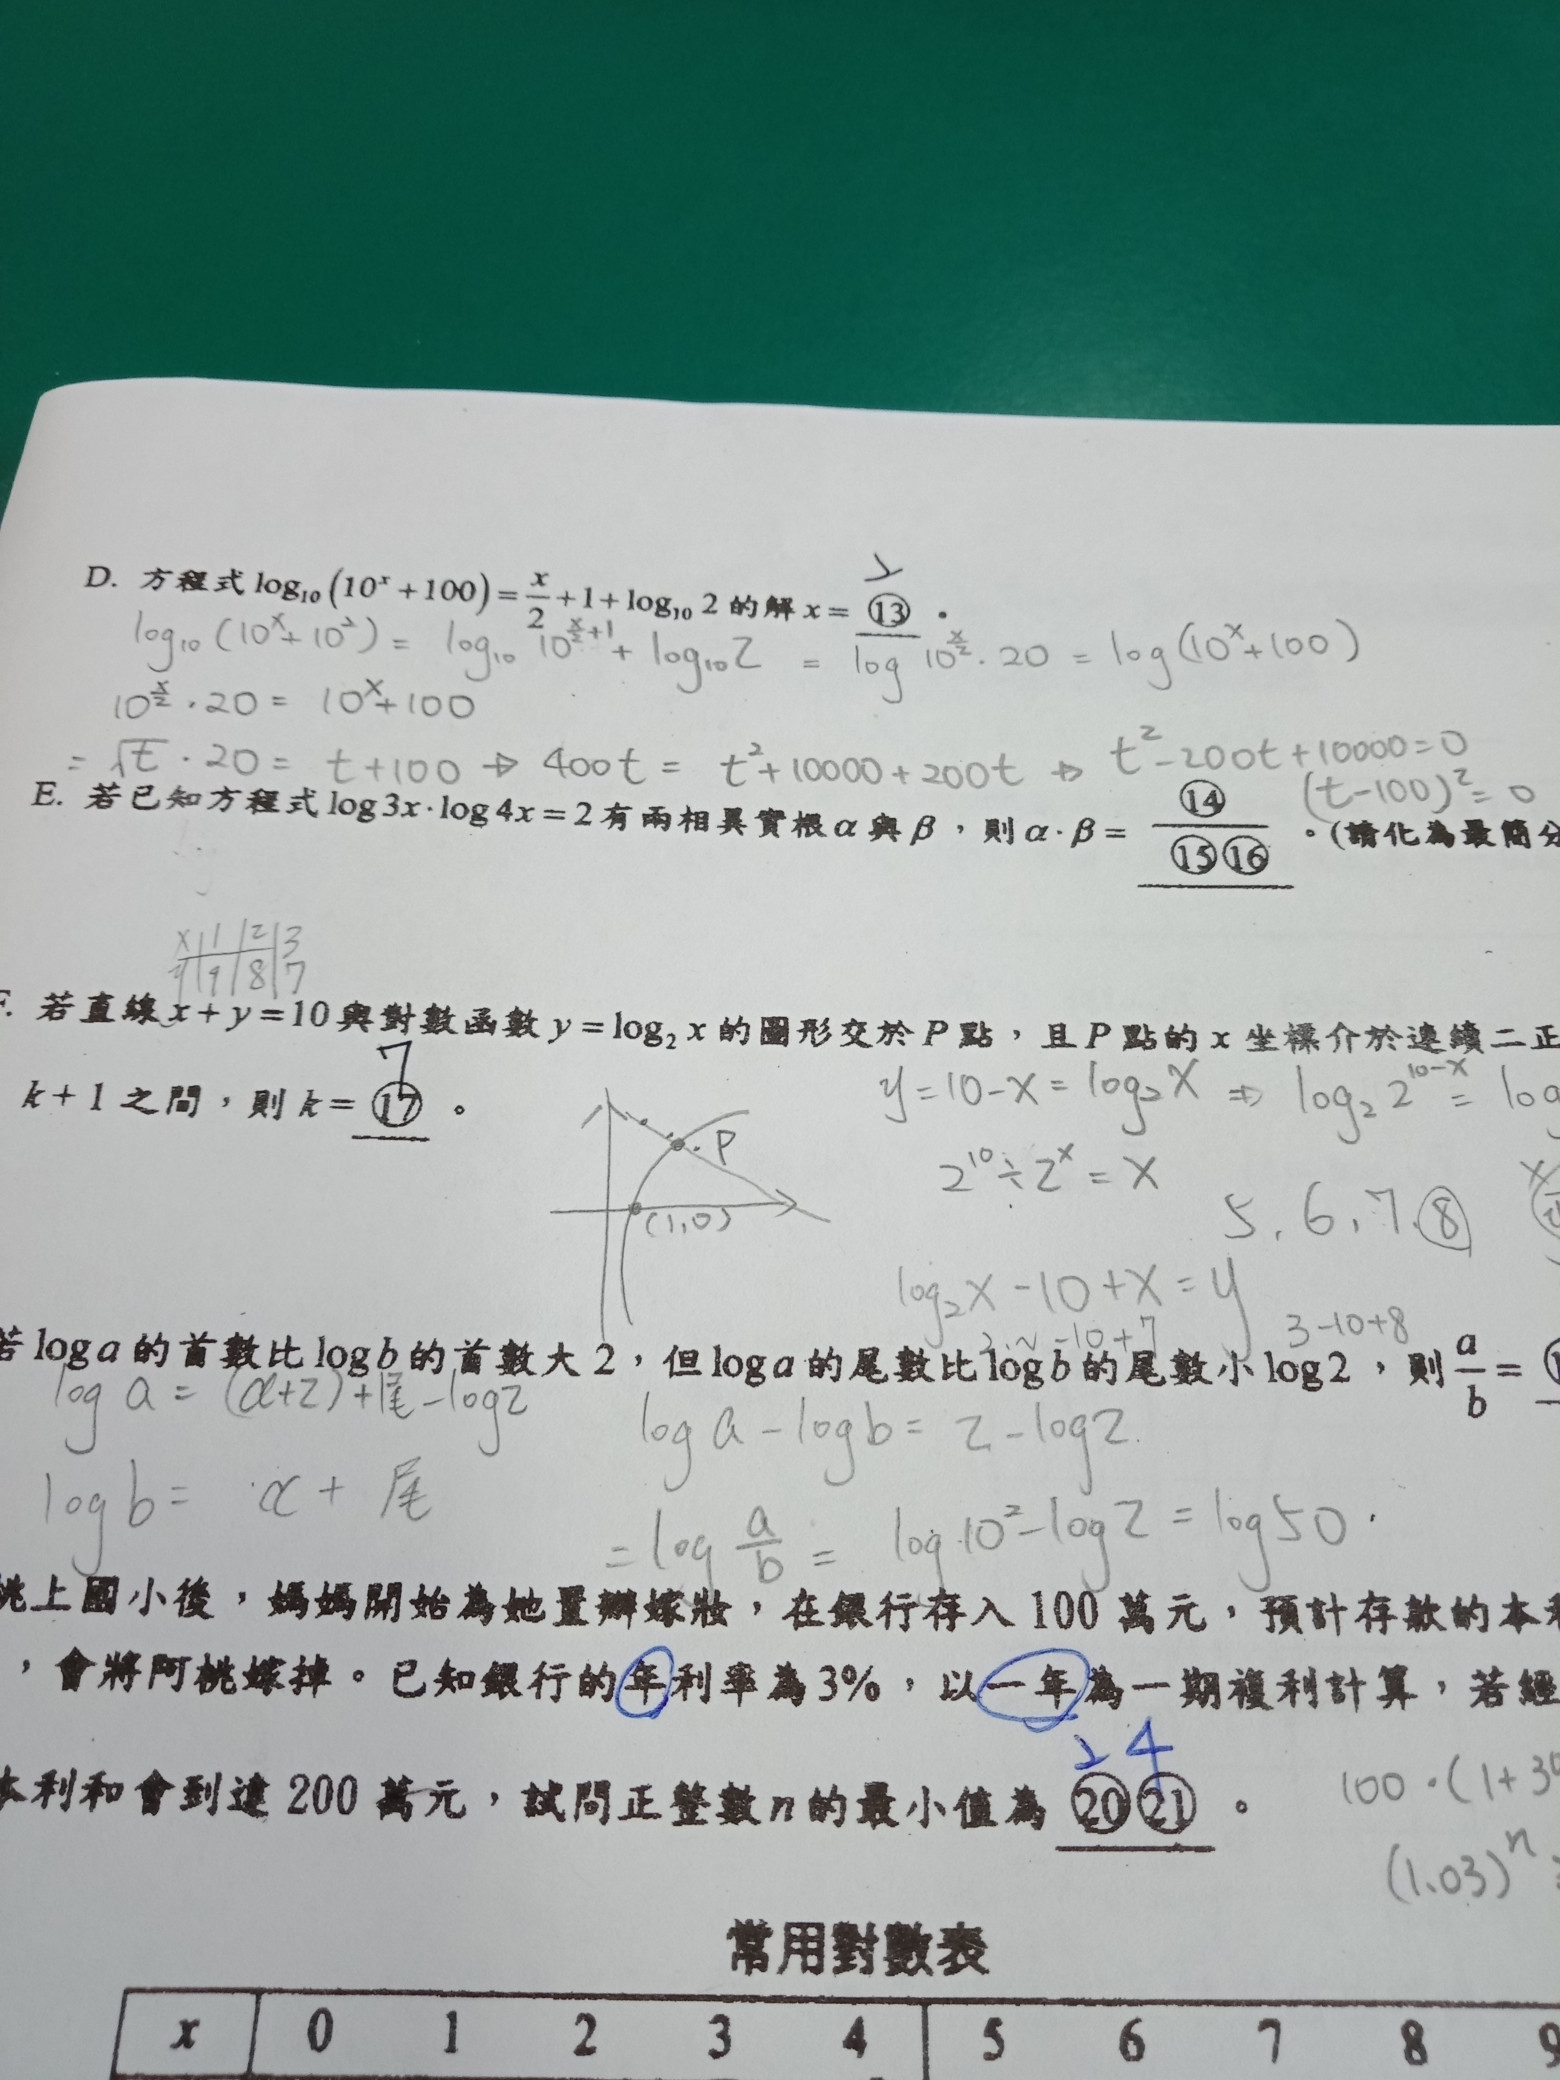 2
D. 方程式 log₁₀(10ˣ+100)=x/2+1+log₁₀2 的解 x= ⑬ 。
log₁₀(10ˣ+10²) = log₁₀ 10^(x/2+1) + log₁₀2 = log 10^(x/2)·20 = log(10ˣ+100)
10^(x/2)·20 = 10ˣ+100
= √t·20 = t+100 → 400t = t²+10000+200t → t²-200t+10000=0
(t-100)²=0
E. 若已知方程式 log3x·log4x=2 有兩相異實根 α 與 β,則 α·β= ⑭/⑮⑯ 。(請化為最簡分
x 1 2 3
y 9 8 7
F. 若直線 x+y=10 與對數函數 y=log₂x 的圖形交於 P 點,且 P 點的 x 坐標介於連續二正
7
k+1 之間,則 k= ⑰ 。
y=10-x=log₂x ⇒ log₂2^(10-x) = log
P
(1,0)
2¹⁰÷2ˣ = x
5, 6, 7, ⑧
log₂x-10+x=y
3-10+8
若 log a 的首數比 log b 的首數大 2,但 log a 的尾數比 log b 的尾數小 log2,則 a/b =
log a = (α+2)+尾-log2
log a - log b = 2-log2.
log b = α + 尾
= log a/b = log10²-log2 = log50
桃上國小後,媽媽開始為她置辦嫁妝,在銀行存入 100 萬元,預計存款的本利
,會將阿桃嫁掉。已知銀行的年利率為 3%,以一年為一期複利計算,若經
24
本利和會到達 200 萬元,試問正整數 n 的最小值為 ⑳㉑ 。
100·(1+3
(1.03)ⁿ
常用對數表
x 0 1 2 3 4 5 6 7 8 9